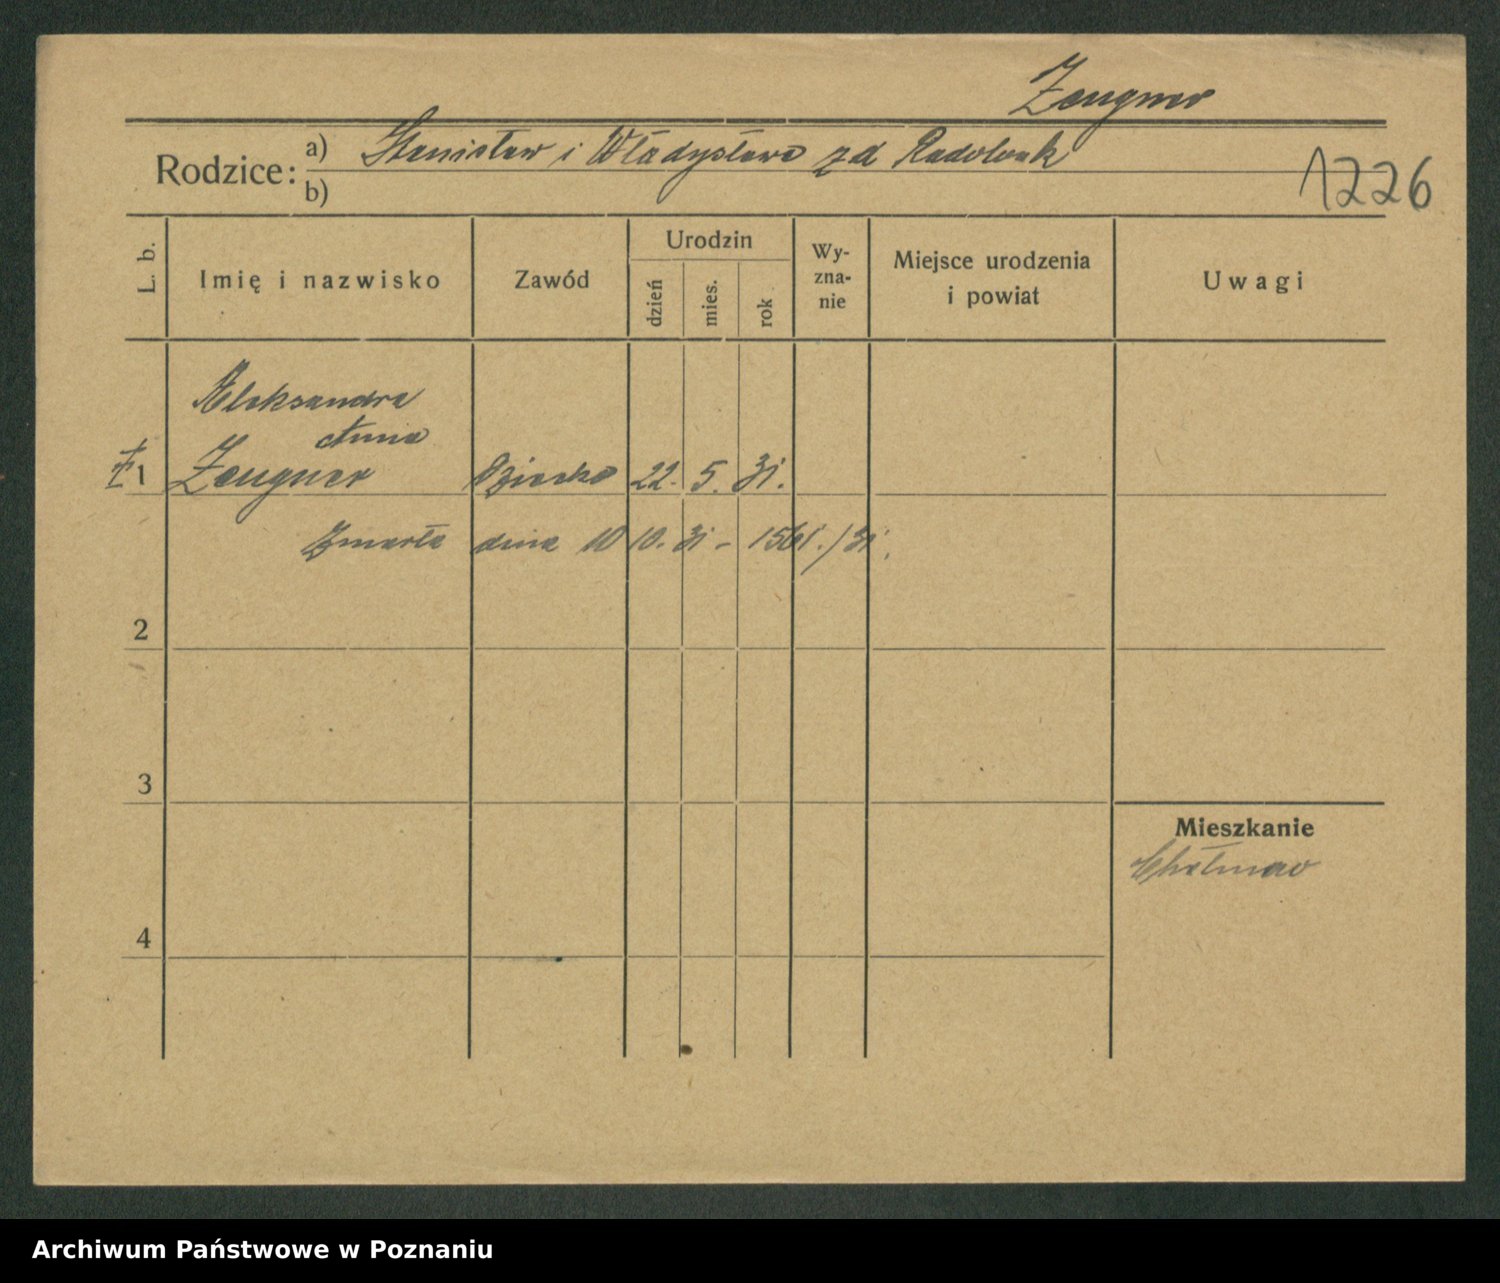 Zeugner
Rodzice: a) Stanisław i Władysława zd Radolnik
b)
1226
L. b.
Imię i nazwisko
Zawód
Urodzin
dzień
mies.
rok
Wy-
zna-
nie
Miejsce urodzenia
i powiat
Uwagi
Aleksandra
Anna
1 Zeugner Dziecko 22. 5. 31.
Zmarła dnia 10 10. 31 - 1561./31.
2
3
Mieszkanie
4
Archiwum Państwowe w Poznaniu